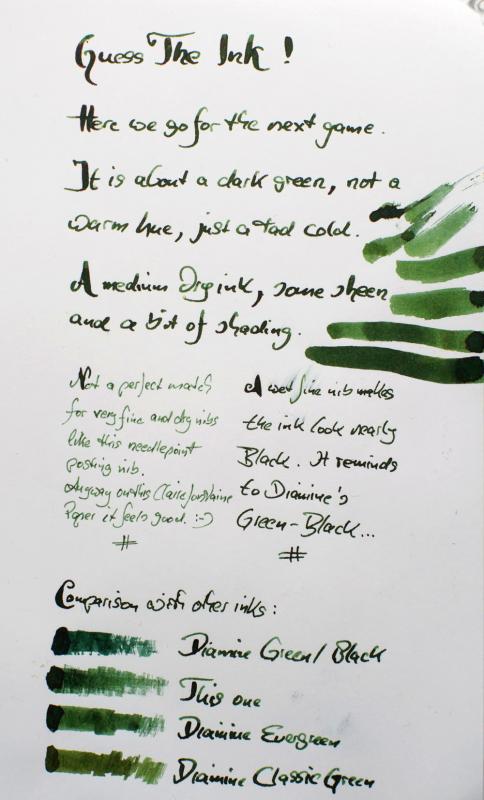 Guess The Ink !
Here we go for the next game.
It is about a dark green, not a
warm hue, just a tad cold.
A medium Dry ink, some sheen
and a bit of shading.
Not a perfect match
for very fine and dry nibs
like this needlepoint
posting nib.
Anyway on this Clairefontaine
Paper it feels good. :-)
#
A wet fine nib makes
the ink look nearly
Black. It reminds
to Diamine's
Green-Black...
#
Comparison with other inks:
Diamine Green/Black
This one
Diamine Evergreen
Diamine Classic Green